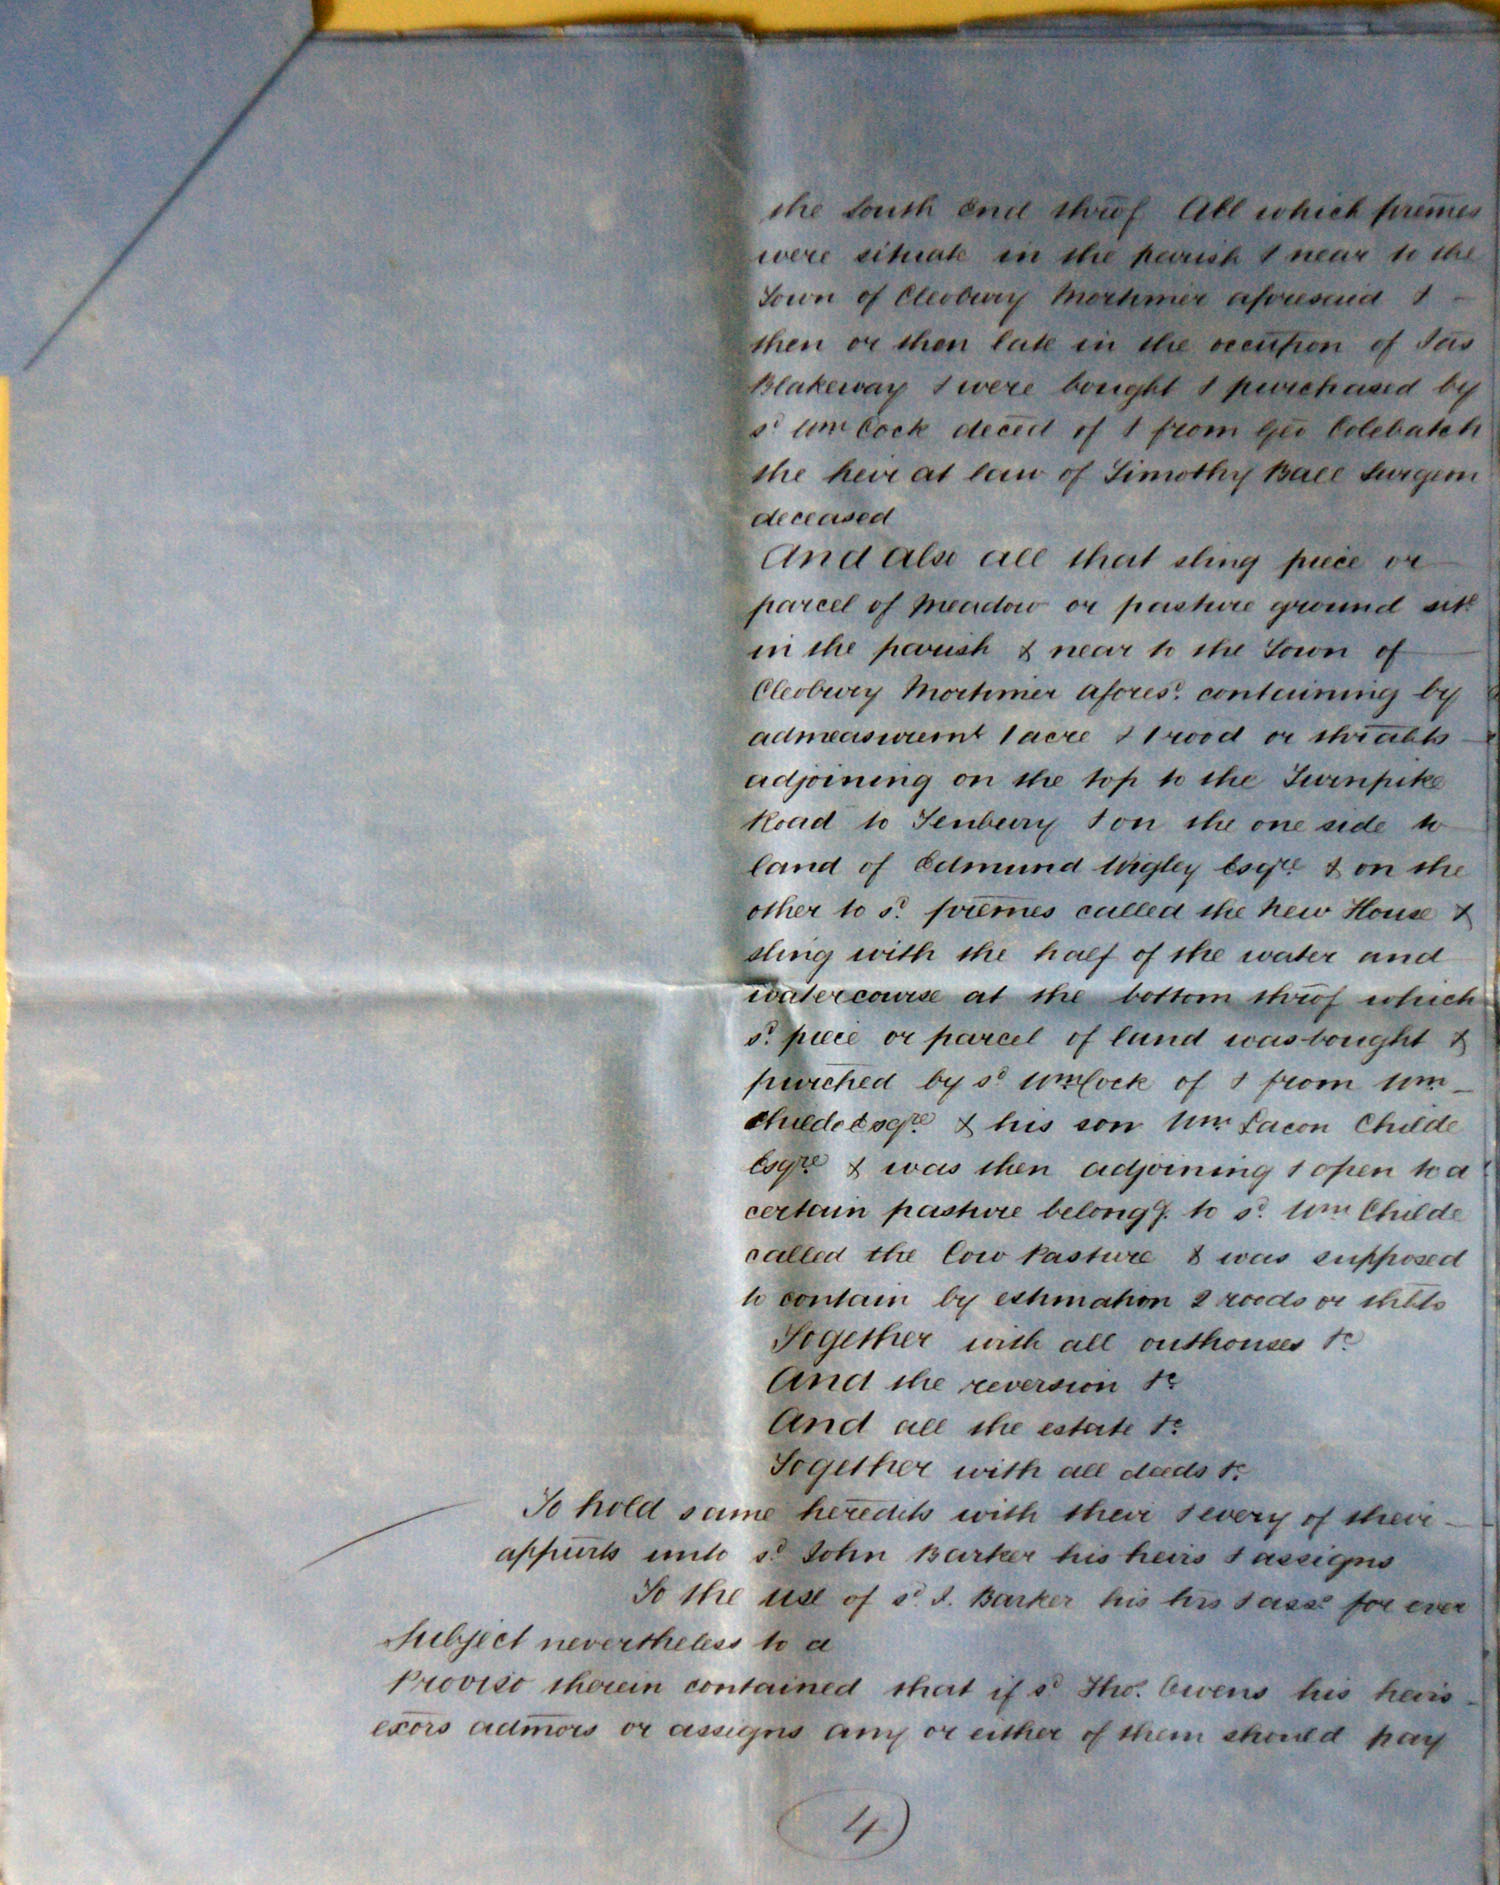 the South End thrōf All which prem̄es
were situate in the parish & near to the
Town of Cleobury Mortimer aforesaid & –
then or then late in the occup̄on of Jas
Blakeway & were bought & purchased by
sd. Wm Cock decēd of & from Geo Colebatch
the heir at law of Timothy Ball Surgeon
deceased
And also all that sling piece or
parcel of Meadow or pasture ground site
in the parish & near to the Town of
Cleobury Mortimer aforesd. containing by
admeasuremt 1 acre & 1 rood or thrēabts
adjoining on the top to the Turnpike
Road to Tenbury & on the one side to
land of Edmund Wigley Esqre. & on the
other to sd. prem̄es called the New House &
sling with the half of the water and
watercourse at the bottom thrōf which
sd. piece or parcel of land was bought &
purc̄hed by sd Wm. Cock of & from Wm. –
Childe Esqre. & his son Wm. Lacon Childe
Esqre. & was then adjoining & open to a
certain pasture belongg. to sd. Wm Childe
called the Cow Pasture & was supposed
to contain by estimation 2 roods or thbts
Together with all outhouses &c.
And the reversion &c
And all the estate &c.
Together with all deeds &c.
To hold same herēdits with their & every of their –
appurts unto sd John Barker his heirs & assigns
To the use of sd. J. Barker his hrs & asss. for ever
Subject nevertheless to a
Proviso therein contained that if sd Thos. Owens his heirs –
exōrs adm̄ors or assigns any or either of them should pay
4